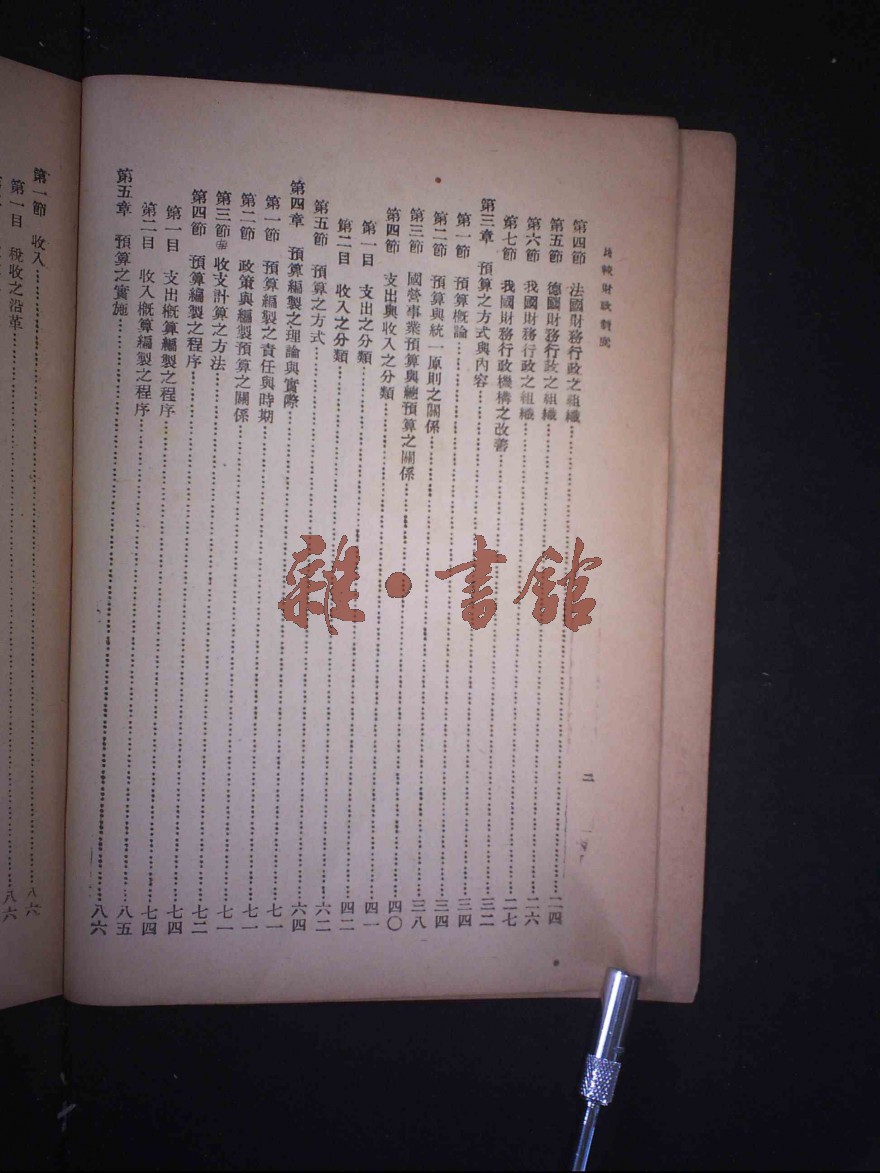 比較財政制度
二
第四節 法國財務行政之組織……二四
第五節 德國財務行政之組織……二六
第六節 我國財務行政之組織……二七
第七節 我國財務行政機構之改善……三二
第三章 預算之方式與內容……三四
第一節 預算概論……三四
第二節 預算與統一原則之關係……三八
第三節 國營事業預算與總預算之關係……四〇
第四節 支出與收入之分類……四一
第一目 支出之分類……四二
第二目 收入之分類……六二
第五節 預算之方式……六四
第四章 預算編製之理論與實際……七一
第一節 預算編製之責任與時期……七一
第二節 政策與編製預算之關係……七一
第三節 收支計算之方法……七二
第四節 預算編製之程序……七四
第一目 支出概算編製之程序……七四
第二目 收入概算編製之程序……八五
第五章 預算之實施……八六
第一節 收入……八六
第一目 稅收之沿革……八六
雜·書館